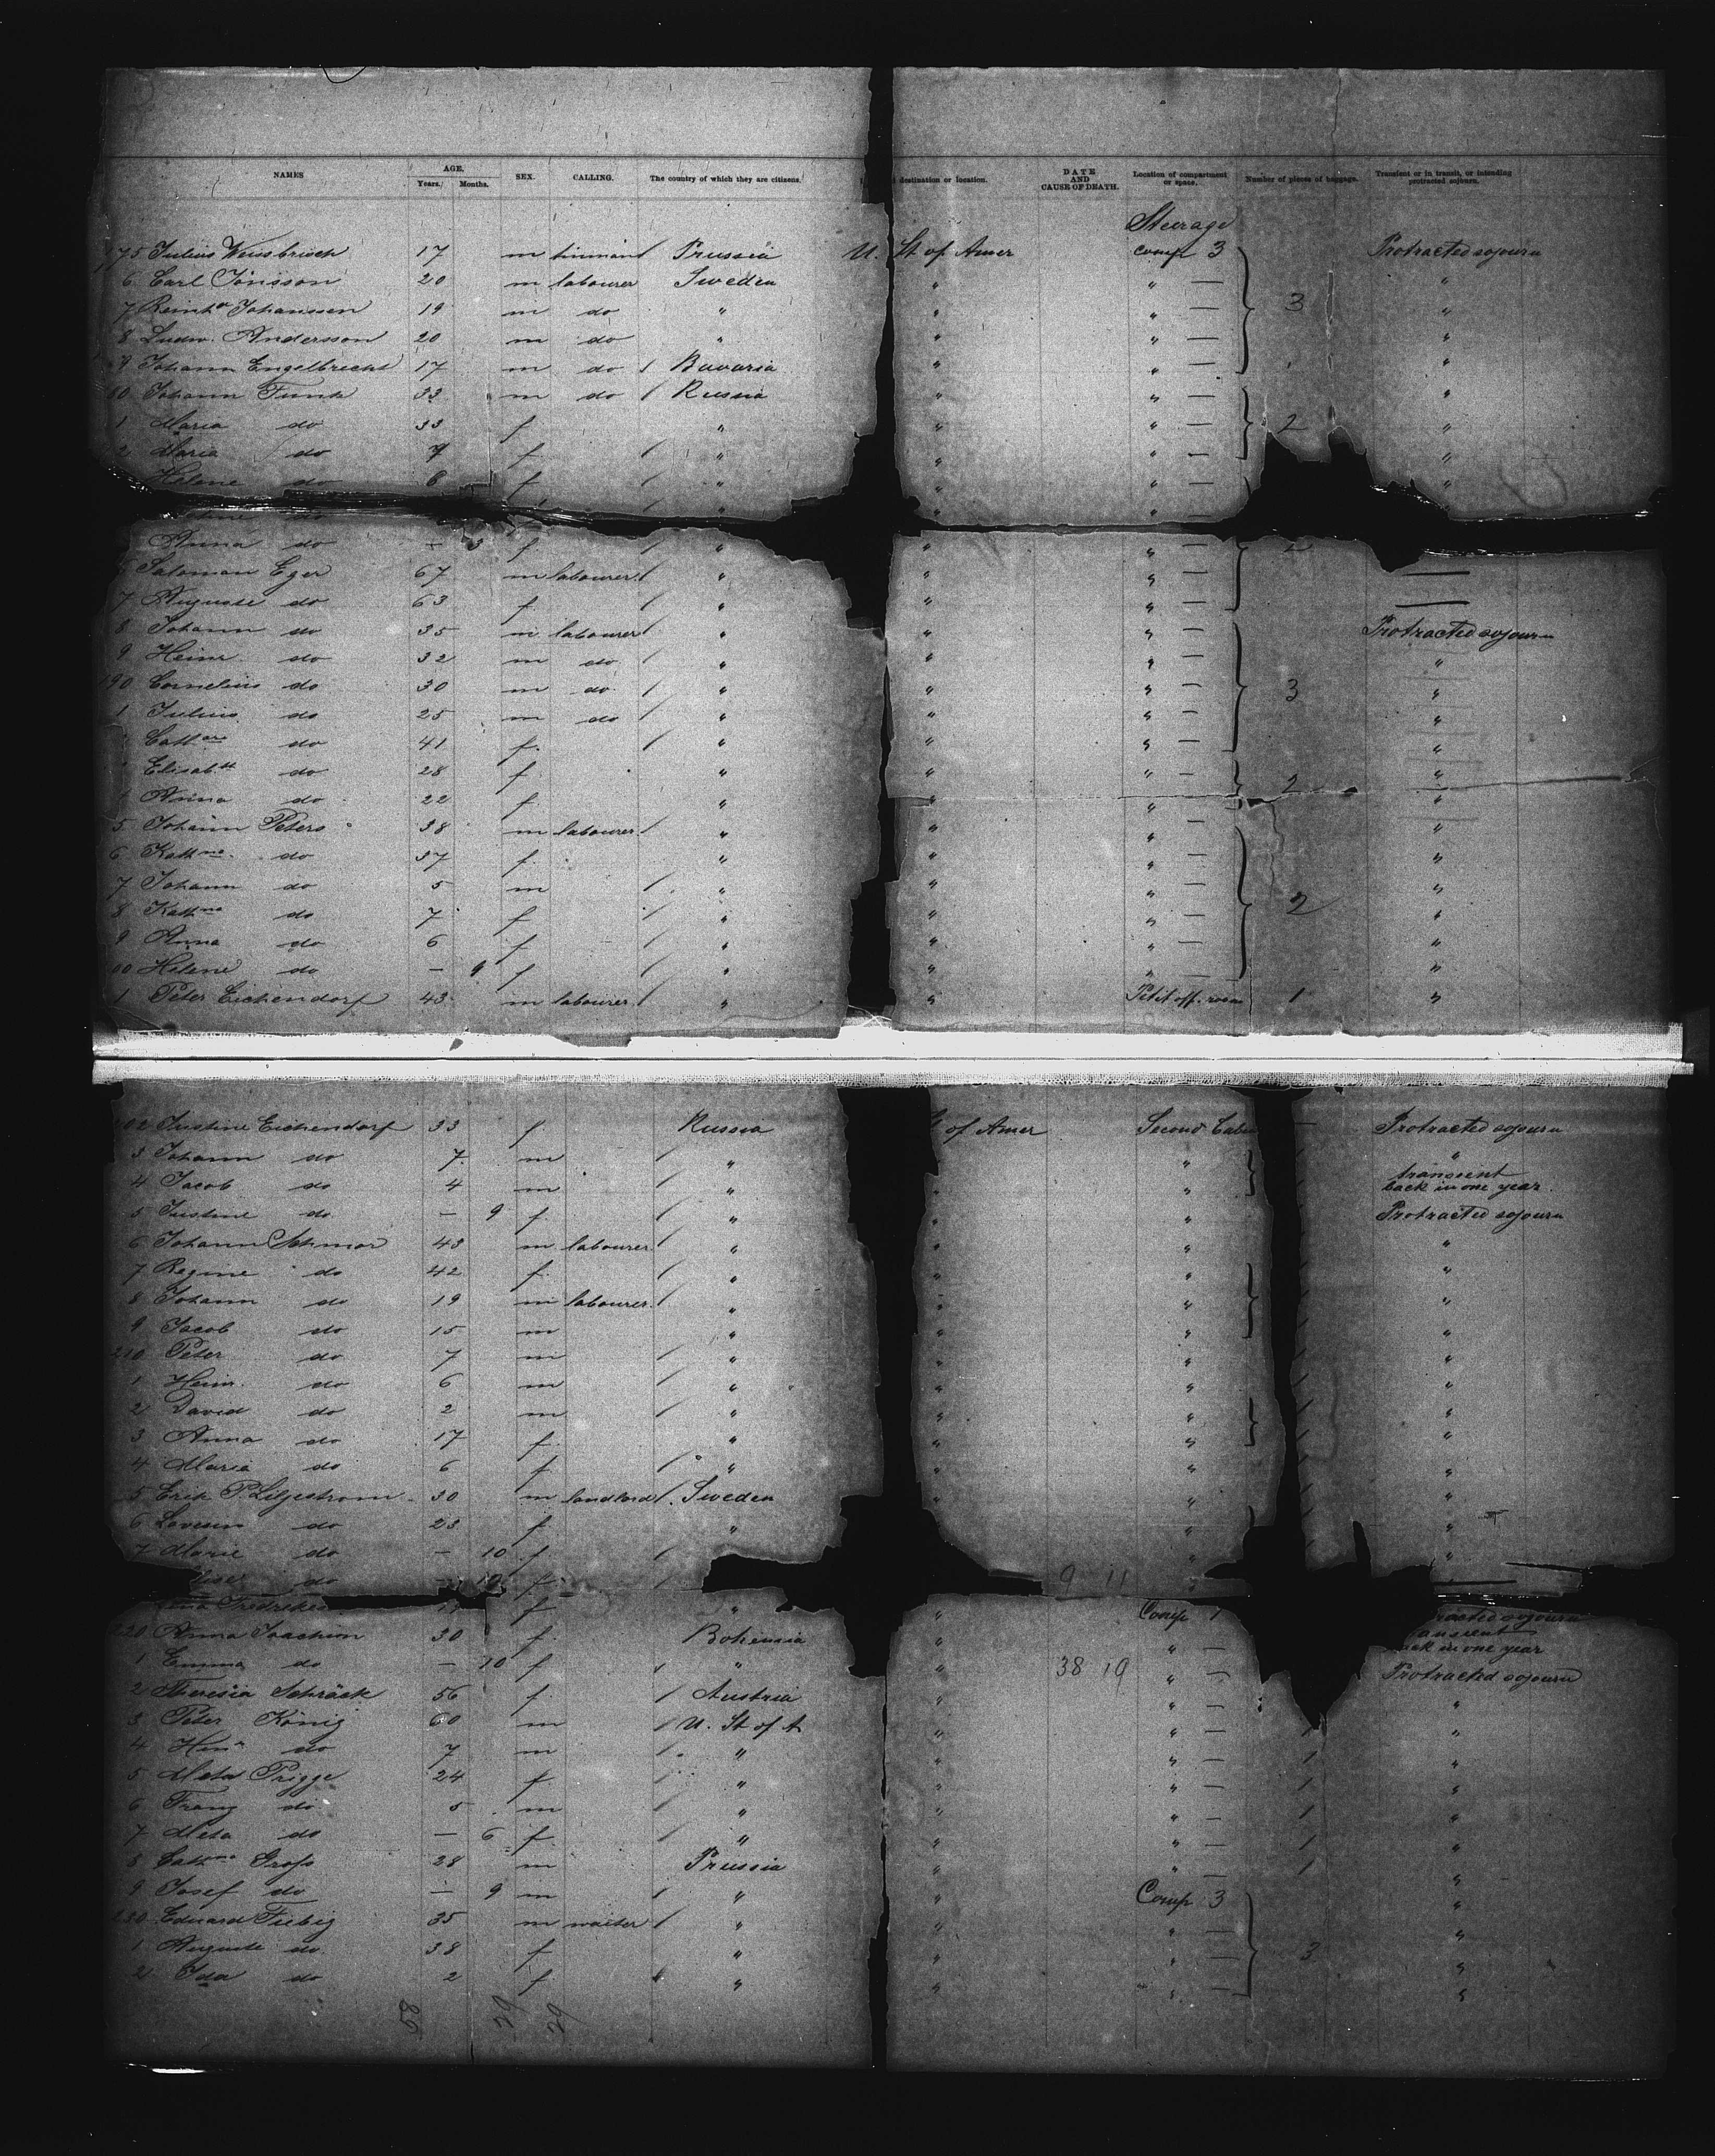 NAMES AGE. Years. Months. SEX. CALLING. The country of which they are citizens. destination or location. DATE AND CAUSE OF DEATH. Location of compartment or space. Number of pieces of baggage. Transient or in transit, or intending protracted sojourn.
Steerage
75 Julius 17 m Prussia U. St of Amer comp 3 Protracted sojourn
6 Carl Jönsson 20 m labourer Sweden " " — "
7 Johanssen 19 m do " " " — 3 "
8 Ludw. Andersson 20 m do " " " — "
9 Johann Engelbrecht 17 m do / Bavaria " " — "
80 Johann Funk 33 m do / Russia " " — "
1 Maria do 33 f " " " — 2 "
2 Maria do 7 f / " " " — "
Helene do 6 f / " " " — "
Anna do — 3 f / " " " —
Salomon Eger 67 m labourer / " " " — —
7 Auguste do 63 f / " " " — —
8 Johann do 35 m labourer / " " " — Protracted sojourn
9 Heinr. do 32 m do / " " " — "
190 Cornelius do 30 m do / " " " — 3 "
1 Julius do 25 m do / " " " — "
Cath do 41 f. / " " " — "
Elisabth do 28 f " " " — 2 "
Anna do 22 f " " " — "
5 Johann Peters 38 m labourer / " " " — "
6 Kathna. do 37 f " " " — "
7 Johann do 5 m / " " " — "
8 Kathna do 7 f / " " " — 2 "
9 Anna do 6 f / " " " — "
00 Helene do — 9 f / " " " — "
1 Peter Eichendorf 43 m labourer / " " Petit off. room 1 "
02 Justine Eichendorf 33 f Russia of Amer Second Protracted sojourn
3 Johann do 7 m / " " " "
4 Jacob do 4 m / " " " transient
back in one year.
5 Justine do — 9 f / " " " Protracted sojourn
6 Johann Schmor 43 m labourer / " " " "
7 Regine do 42 f / " " " "
8 Johann do 19 m labourer / " " " "
9 Jacob do 15 m " " " "
210 Peter do 7 m / " " " "
1 Heinr. do 6 m / " " " "
2 David do 2 m / " " " "
3 Anna do 17 f " " " "
4 Maria do 6 f / " " " "
5 Erik P. Liljestrom 30 m landlord / Sweden " " "
6 do 23 f " " " "
7 Marie do — 10 f / " "
do — 10 f / 9 11 "
f " " Comp 1
220 Anna Joachim 30 f Bohemia " "
back in one year
1 Emma do — 10 f / " " 38 19 " — Protracted sojourn
2 Theresia Schräck 56 f / Austria " " — "
3 Peter König 60 m / U. St of A " " — 1 "
4 do 7 m / " " " — 1 "
5 Meta Prigge 24 f / " " " — 1 "
6 Franz do 5 m / " " " — 1 "
7 Meta do — 6 f / " " " — 1 "
8 Groß 28 m Prussia " " — 1 "
9 Josef do — 9 m / " " Comp 3 "
230 Eduard Fiebig 35 m waiter / " " " — "
1 Auguste do 38 f " " " — 3 "
2 Ida do 2 f / " " " — "
58 29 29